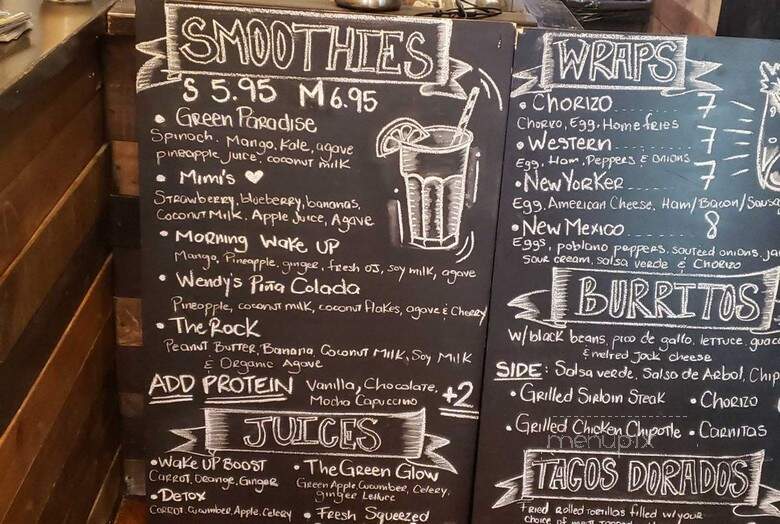 SMOOTHIES
S 5.95 M 6.95
• Green Paradise
Spinach, Mango, Kale, agave
pineapple juice, coconut milk
• Mimi's ♥
Strawberry, blueberry, bananas,
Coconut Milk, Apple Juice, Agave
• Morning Wake Up
Mango, Pineapple, ginger, fresh OJ, soy milk, agave
• Wendy's Piña Colada
Pineapple, coconut milk, coconut flakes, agave & Cherry
• The Rock
Peanut Butter, Banana, Coconut Milk, Soy Milk
& Organic Agave
ADD PROTEIN Vanilla, Chocolate, +2
Mocha Capuccino
JUICES
• Wake Up Boost
Carrot, Orange, Ginger
• Detox
Carrot, Cucumber, Apple, Celery
• The Green Glow
Green Apple, Cucumber, Celery,
ginger Lettuce
• Fresh Squeezed
WRAPS
• Chorizo 7
Chorizo, Egg, Home fries
• Western 7
Egg, Ham, Peppers & Onions
• New Yorker 7
Egg, American Cheese, Ham/Bacon/Sausa
• New Mexico 8
Eggs, poblano peppers, sauteed onions, ja
sour cream, salsa verde & Chorizo
BURRITOS
w/ black beans, pico de gallo, lettuce, guac
& melted Jack cheese
SIDE: Salsa verde, Salsa de Arbol, Chip
• Grilled Sirloin Steak • Chorizo
• Grilled Chicken Chipotle • Carnitas
menupix
TACOS DORADOS
Fried rolled tortillas filled w/ your
choice of